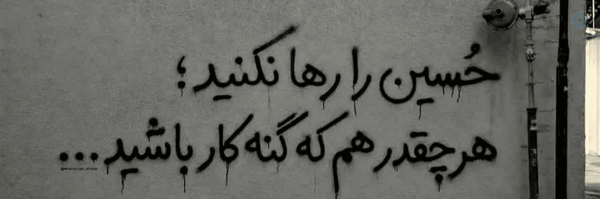 حُسین را رها نکنید؛
هر چقدر هم که گنه کار باشید...